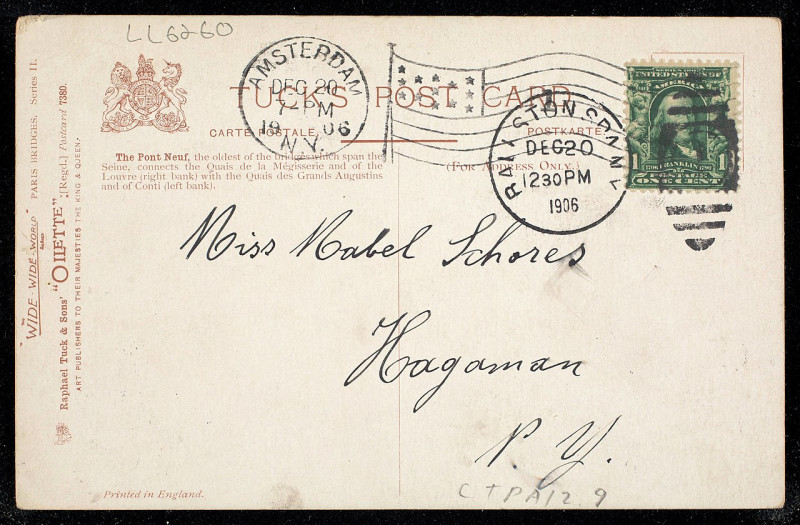 LL6260
AMSTERDAM
DEC 20
7-PM
1906
N.Y.
TUCK'S POST CARD
CARTE POSTALE
POSTKARTE
(FOR ADDRESS ONLY.)
The Pont Neuf, the oldest of the bridges which span the
Seine, connects the Quais de la Mégisserie and of the
Louvre (right bank) with the Quais des Grands Augustins
and of Conti (left bank).
BALLSTON SPA N.Y.
DEC20
1230PM
1906
UNITED STATES OF
AMERICA
1 1
FRANKLIN
POSTAGE
ONE CENT
"WIDE-WIDE-WORLD" PARIS BRIDGES. Series II.
Raphael Tuck & Sons' "OILETTE" [Regd.] Postcard 7380.
ART PUBLISHERS TO THEIR MAJESTIES THE KING & QUEEN.
Miss Mabel Schores
Hagaman
N. Y.
Printed in England.
C T P A 12 9